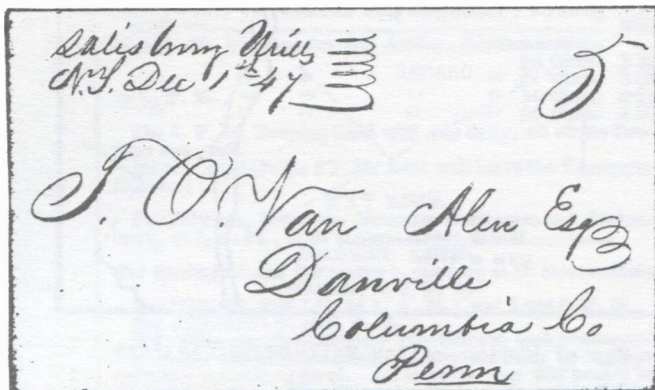 Salisbury Mills
N.Y. Dec 1st 47
5
T. O. Van Alen Esq
Danville
Columbia Co
Penn